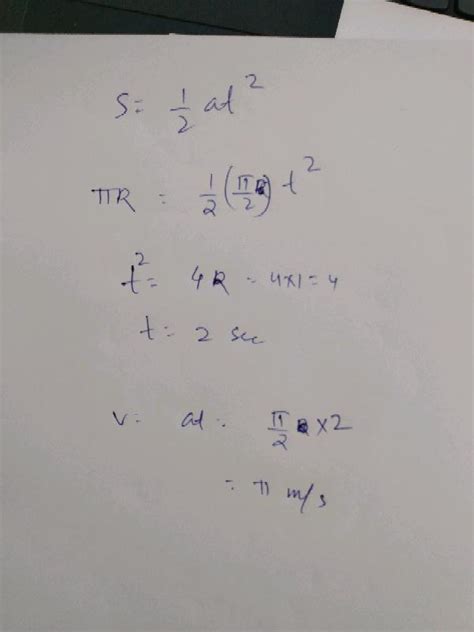 S= 1/2 at²
πR = 1/2 (π/2) t²
t² = 4R = 4×1=4
t= 2 sec
v= at = π/2 ×2
= π m/s